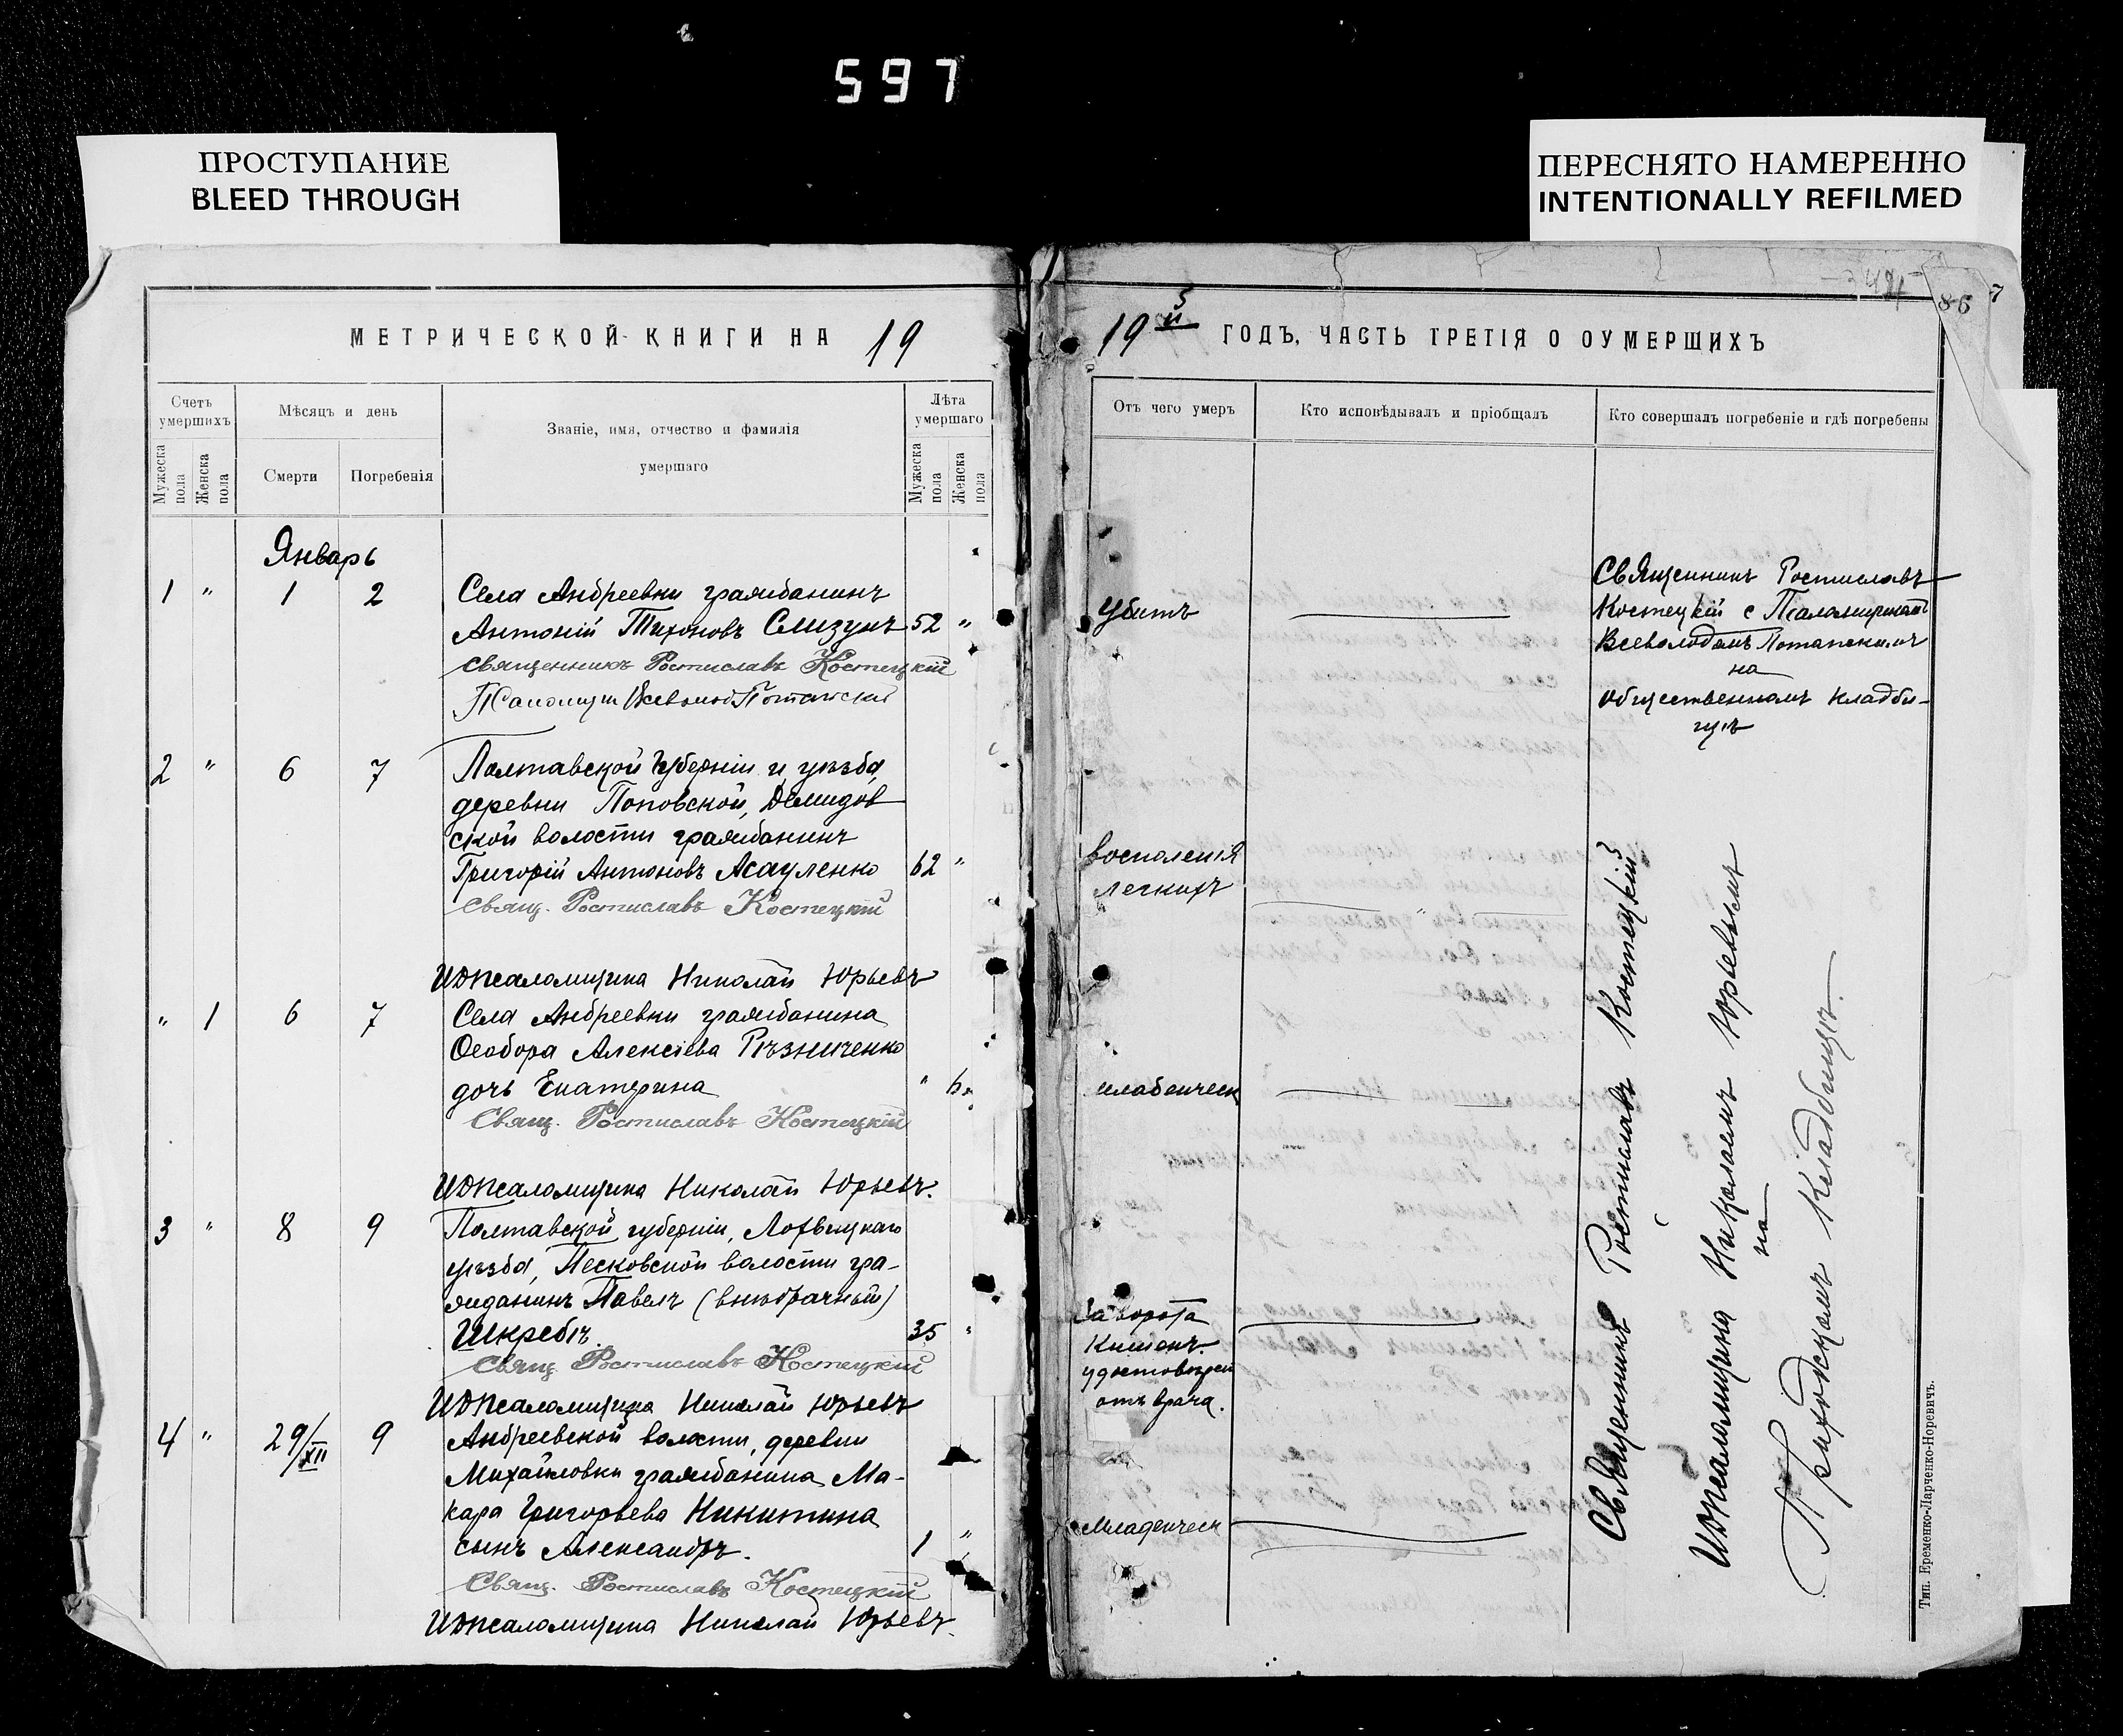 597
ПРОСТУПАНИЕ
BLEED THROUGH
ПЕРЕСНЯТО НАМЕРЕННО
INTENTIONALLY REFILMED
МЕТРИЧЕСКОЙ КНИГИ НА 19
Счетъ умершихъ
Мужеска пола
Женска пола
Мѣсяцъ и день
Смерти
Погребенія
Званіе, имя, отчество и фамилія
умершаго
Лѣта умершаго
Мужеска пола
Женска пола
Январь
1 " 1 2 Села Андреевки гражданинъ
Антоній Тихоновъ Слизунъ 52 "
Священникъ Ростиславъ Костецкій
2 " 6 7 Полтавской губерніи и уѣзда,
деревни Поповской, Демидов
ской волости гражданинъ
Григорій Антоновъ Асауленко 62 "
Свящ. Ростиславъ Костецкій
ИДПсаломщика Николай Юрьевъ
" 1 6 7 Села Андреевки гражданина
Ѳеодора Алексіева Рѣзниченко
дочь Екатерина "
Свящ. Ростиславъ Костецкій
ИДПсаломщика Николай Юрьевъ.
3 " 8 9 Полтавской губерніи, Лохвицкаго
уѣзда, Песковской волости гра-
жданинъ Павелъ (внѣбрачный)
Шкребіъ 35 "
Свящ. Ростиславъ Костецкій
ИДПсаломщика Николай Юрьевъ
4 " 29/XII 9 Андреевской волости, деревни
Михайловки гражданина Ма-
кара Григорьева Никитина
сынъ Александръ. 1 "
Свящ. Ростиславъ Костецкій
ИДПсаломщика Николай Юрьевъ.
86
7
19 й ГОДЪ, ЧАСТЬ ТРЕТІЯ О ОУМЕРШИХЪ
Отъ чего умеръ
Кто исповѣдывалъ и пріобщалъ
Кто совершалъ погребеніе и гдѣ погребены
Убитъ
Священникъ Ростиславъ
Костецкій с Псаломщикомъ
Всеволодомъ Потапскимъ
на
общественномъ кладби-
щѣ
Восполенія
легкихъ
младенческ
Заворота
Кишекъ.
удостовѣрен
отъ врача.
Младенческ
Священникъ Ростиславъ Костецкій
ИДПсаломщика Николаемъ Юрьевымъ
на
Приходскомъ Кладбищѣ.
Тип. Еременко-Ларченко-Норевичъ.